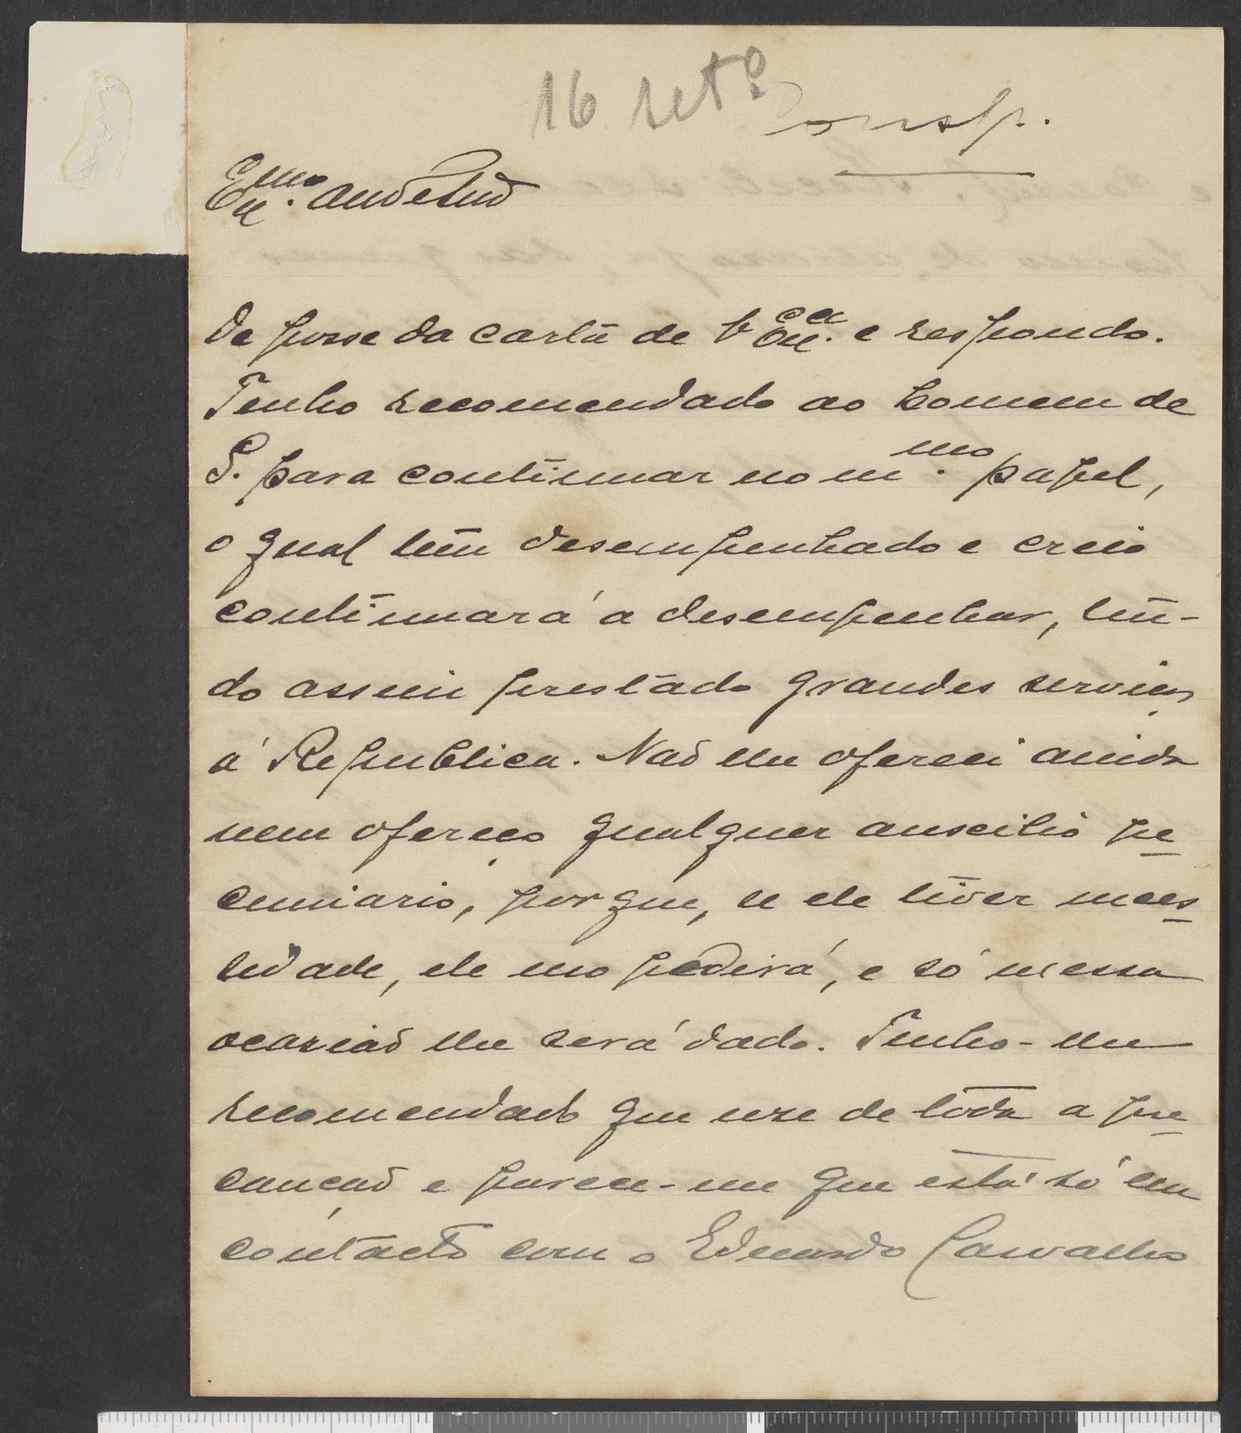 16 setº
resp.
Exmo. amº e Snr
De posse da carta de V Excia. e respondo.
Tenho recomendado ao homem de
S. para continuar no mmo. papel,
o qual tem desempenhado e creio
continuará a desempenhar, ten-
do assim prestado grandes serviços
á Republica. Não lhe ofereci ainda
nem ofereço qualquer auscilio pe
cuniario, porque, se ele tiver neces
sidade, ele mo pedirá, e só nessa
ocasião lhe será dado. Tenho-lhe
recomendado que use de toda a pre
caução e parece-me que está só em
contacto com o Eduardo Carvalho